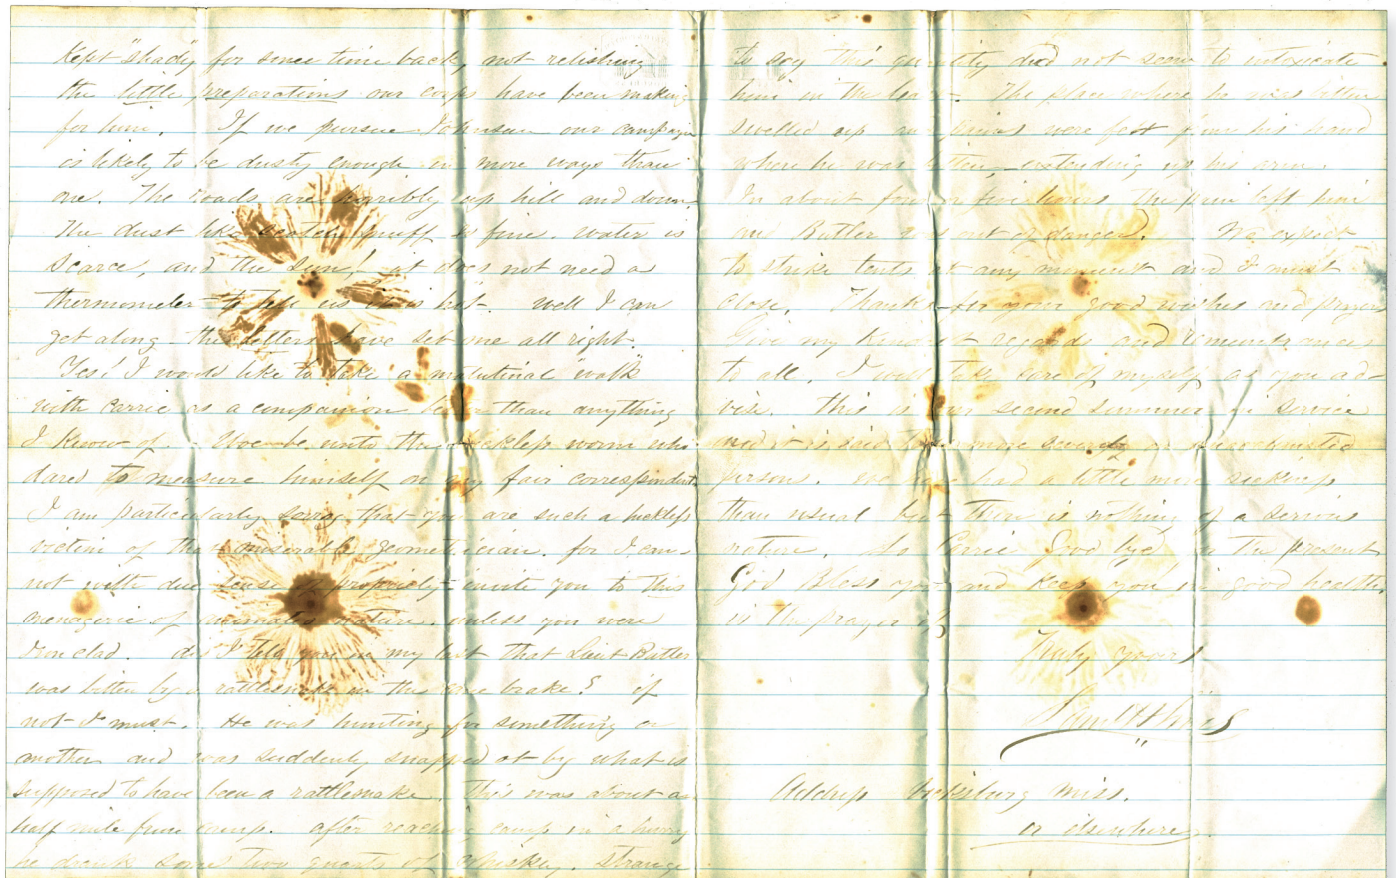 Kept "shady" for some time back, not relishing
the little preparations our corps have been making
for him. If we pursue Johnson our campaign
is likely to be dusty enough in more ways than
one. The roads are horribly up hill and down
The dust like snuff is fine. water is
scarce, and the sun! it does not need a
thermometer to tell us it is hot. well I can
get along the letters have set me all right.
Yes! I would like to take a "matutinal walk"
with Carrie as a companion better than anything
I know of. Woe be unto the luckless worm who
dared to measure himself on my fair correspondent
I am particularly sorry that you are such a luckless
victim of the miserable geometrician. for I can
not with due sense of propriety invite you to this
menagerie of animate nature, unless you were
Iron clad. did I tell you in my last that Lieut Butler
was bitten by a rattlesnake in the cane brake? if
not I must. He was hunting for something or
another and was suddenly snapped at by what is
supposed to have been a rattlesnake. This was about a
half mile from camp. after reaching camp in a hurry
he drank some two quarts of whiskey. Strange
to say this quantity did not seem to intoxicate
him in the least. The place where he was bitten
swelled up and pains were felt from his hand
where he was bitten extending up his arm.
In about four or five hours the pain left him
and Butler was out of danger. We expect
to strike tents at any moment and I must
close. Thanks for your good wishes and prayers
Give my kindest regards and remembrances
to all. I will take care of myself as you ad-
vise. This is our second summer in service
and it is said to be more severe on unacclimated
person. We have had a little more sickness
than usual but there is nothing of a serious
nature. So Carrie Good bye for the present
God Bless you and keep you in good health,
is the prayer of
Truly yours
Address Vicksburg Miss.
or elsewhere.